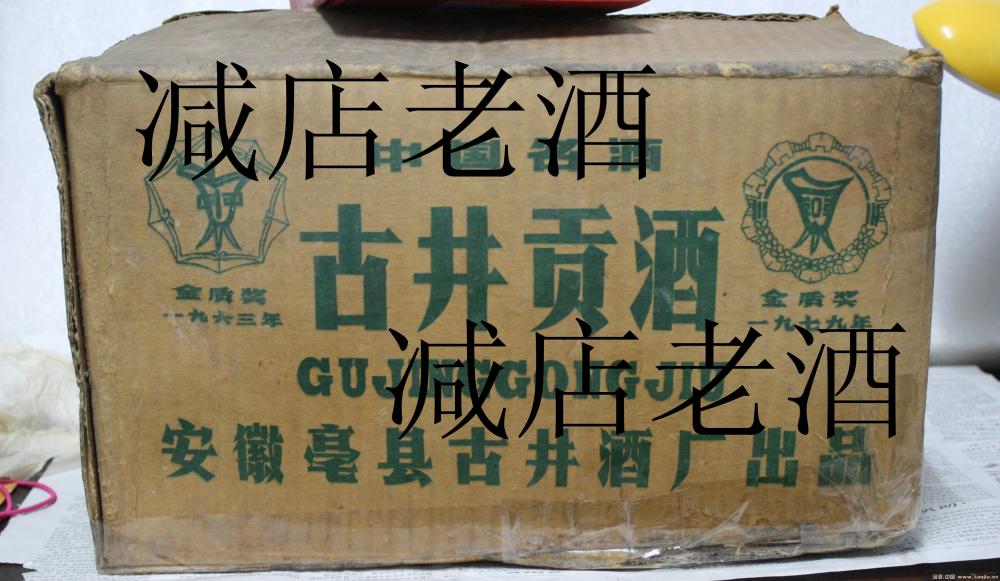 减店老酒
中国名酒
古井贡酒
金质奖
一九六三年
金质奖
一九七九年
GUJINGGONGJIU
减店老酒
安徽亳县古井酒厂出品